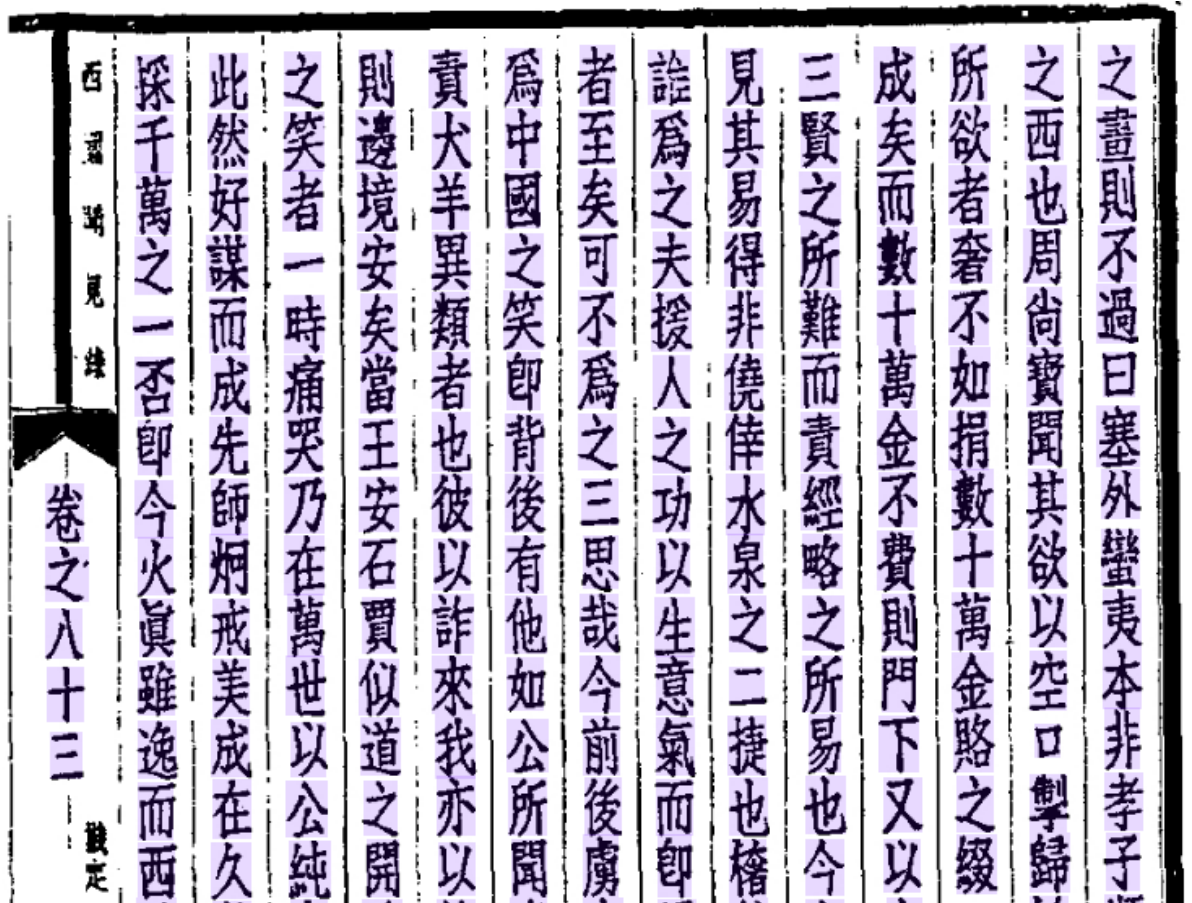 之畫則不過曰塞外蠻夷本非孝子
之西也周尚寶聞其欲以空口掣歸
所欲者奢不如捐數十萬金賂之綴
成矣而數十萬金不費則門下又以
三賢之所難而責經略之所易也今
見其易得非僥倖水泉之二捷也
誰爲之夫援人之功以生意氣而即
者至矣可不爲之三思哉今前後虜
爲中國之笑即背後有他如公所聞
責犬羊異類者也彼以詐來我亦以
則邊境安矣當王安石賈似道之開
之笑者一時痛哭乃在萬世以公純
此然好謀而成先師炯戒美成在久
採千萬之一否即今火眞雖逸而西
西 見
卷之八十三
戡定